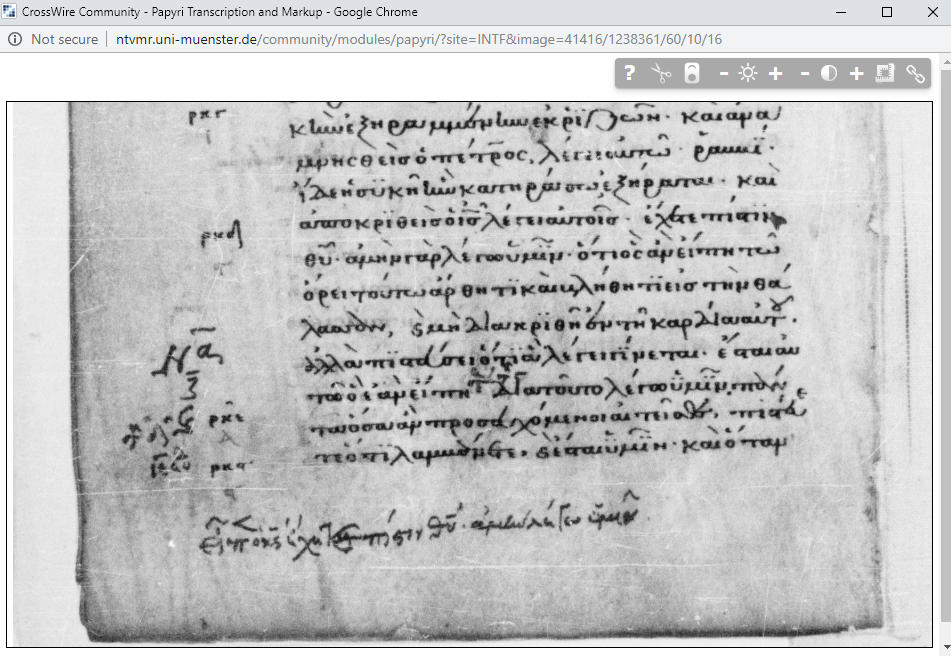 CrossWire Community - Papyri Transcription and Markup - Google Chrome
Not secure | ntvmr.uni-muenster.de/community/modules/papyri/?site=INTF&image=41416/1238361/60/10/16
? - + - +
ρκγ
κὴν ἐξηραμμένην ἐκ ῥιζῶν· καὶ ἀνα
μνησθεὶς ὁ πέτρος, λέγει αὐτῶ· ῥαββί·
ἴδε ἡ συκῆ ἣν κατηράσω ἐξήρανται· καὶ
ρκδ
ἀποκριθεὶς ὁ ις λέγει αὐτοῖς· ἔχετε πίστιν
θυ· ἀμὴν γὰρ λέγω ὑμῖν· ὅτι ὃς ἂν εἴπη τῶ
ὄρει τούτω ἄρθητι καὶ βλήθητι εἰς τὴν θά
λασσαν, ϗ μὴ διακριθῆ ἐν τῆ καρδία αὐτοῦ·
ἀλλὰ πιστεύσει ὅτι ἃ λέγει γίνεται· ἔσται αὐ
τῶ ὃ ἐὰν εἴπη διατοῦτο λέγω ὑμῖν, πάν
ρκε
τα ὅσα ἂν προσευχόμενοι αἰτεῖσθε, πιστεύε
ρκϛ
τε ὅτι λαμβάνετε, ϗ ἔσται ὑμῖν· καὶ ὅταν
πίστιν θυ· ἀμὴν λέγω ὑμῖν